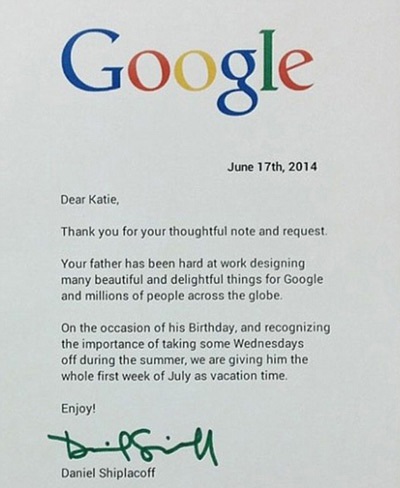 Google
June 17th, 2014
Dear Katie,
Thank you for your thoughtful note and request.
Your father has been hard at work designing
many beautiful and delightful things for Google
and millions of people across the globe.
On the occasion of his Birthday, and recognizing
the importance of taking some Wednesdays
off during the summer, we are giving him the
whole first week of July as vacation time.
Enjoy!
Daniel Shiplacoff